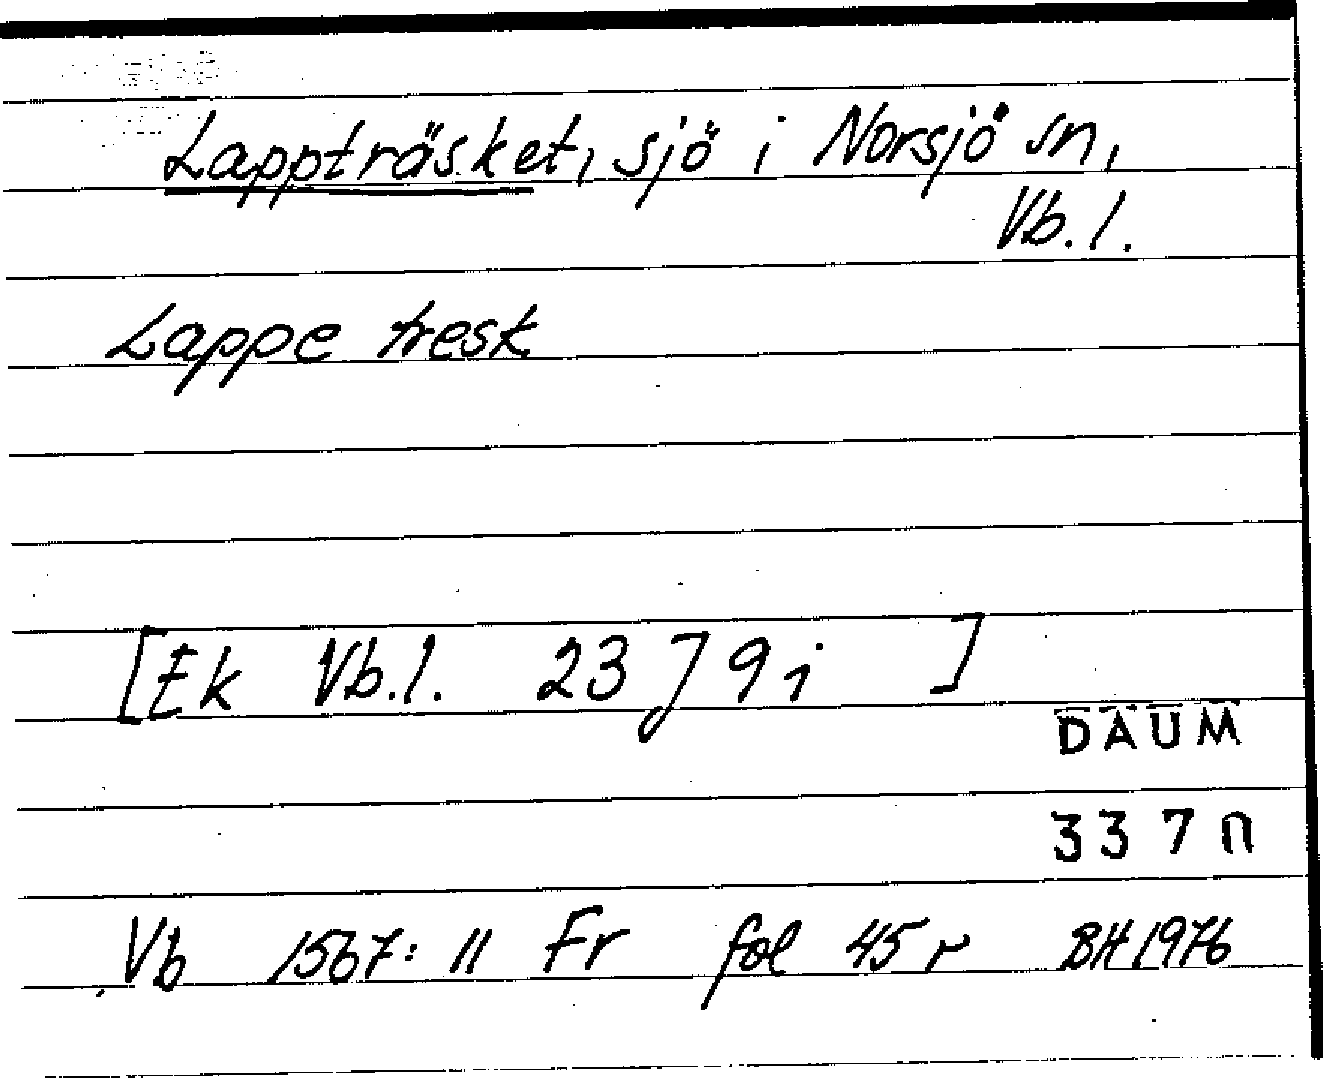 Lappträsket, sjö i Norsjö sn,
Vb.l.
Lappe tresk
[Ek Vb.l. 23 J 9 i ]
DAUM
Vb 1567: 11 Fr fol 45 r BH 1976